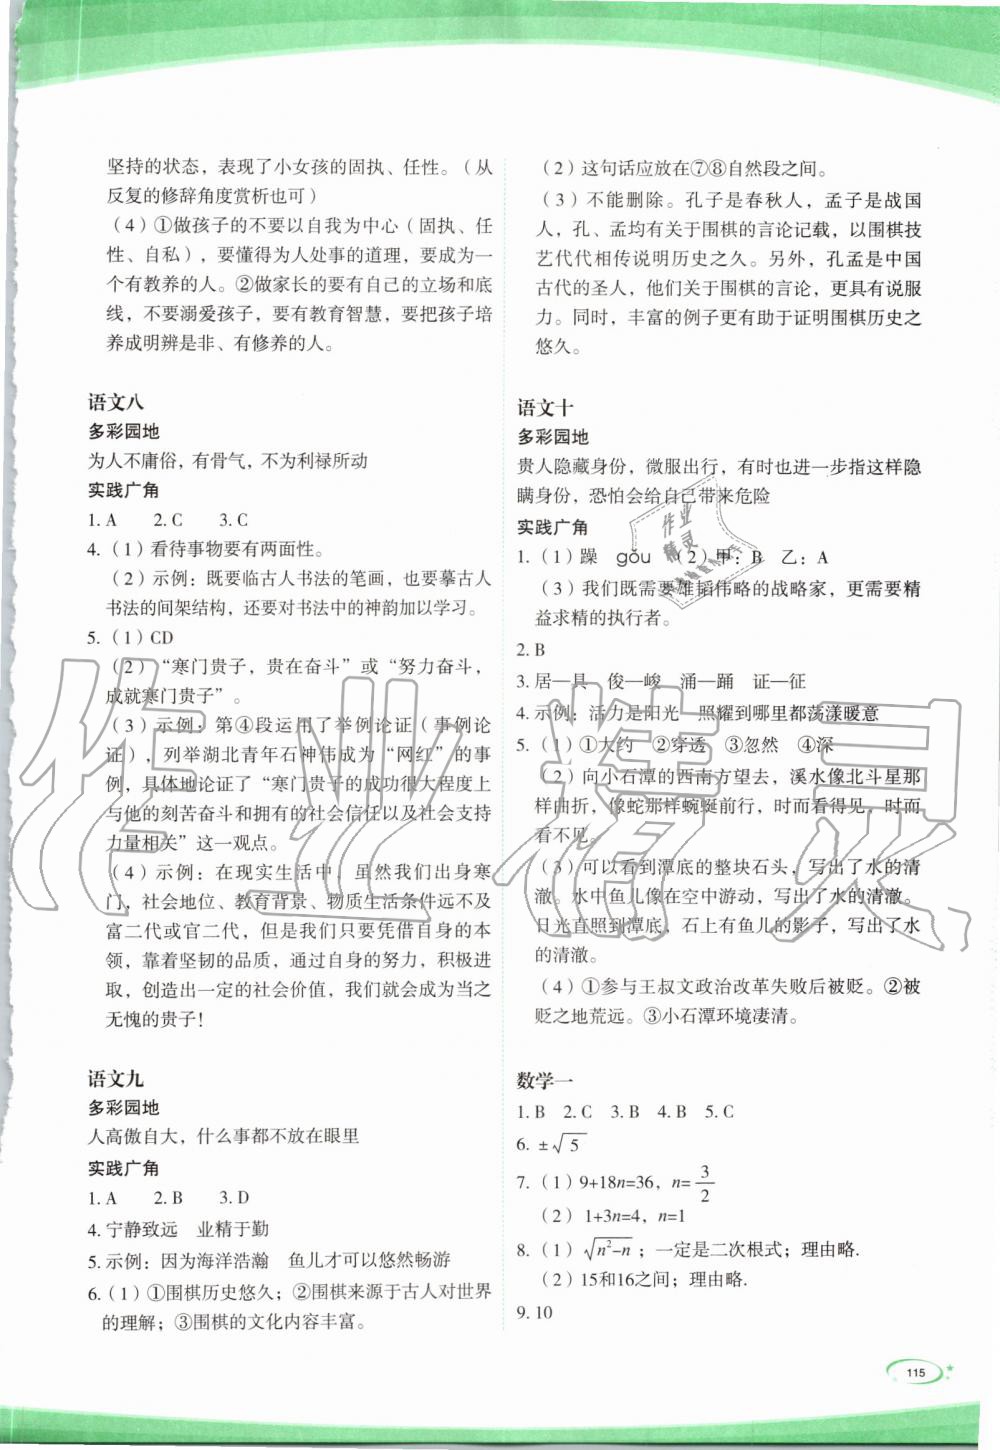 坚持的状态，表现了小女孩的固执、任性。（从
反复的修辞角度赏析也可）
（4）①做孩子的不要以自我为中心（固执、任
性、自私），要懂得为人处事的道理，要成为一
个有教养的人。②做家长的要有自己的立场和底
线，不要溺爱孩子，要有教育智慧，要把孩子培
养成明辨是非、有修养的人。
语文八
多彩园地
为人不庸俗，有骨气，不为利禄所动
实践广角
1. A 2. C 3. C
4.（1）看待事物要有两面性。
（2）示例：既要临古人书法的笔画，也要摹古人
书法的间架结构，还要对书法中的神韵加以学习。
5.（1）CD
（2）“寒门贵子，贵在奋斗”或“努力奋斗，
成就寒门贵子”。
（3）示例：第④段运用了举例论证（事例论
证），列举湖北青年石神伟成为“网红”的事
例，具体地论证了“寒门贵子的成功很大程度上
与他的刻苦奋斗和拥有的社会信任以及社会支持
力量相关”这一观点。
（4）示例：在现实生活中，虽然我们出身寒
门，社会地位、教育背景、物质生活条件远不及
富二代或官二代，但是我们只要凭借自身的本
领，靠着坚韧的品质，通过自身的努力，积极进
取，创造出一定的社会价值，我们就会成为当之
无愧的贵子！
语文九
多彩园地
人高傲自大，什么事都不放在眼里
实践广角
1. A 2. B 3. D
4. 宁静致远 业精于勤
5. 示例：因为海洋浩瀚 鱼儿才可以悠然畅游
6.（1）①围棋历史悠久；②围棋来源于古人对世界
的理解；③围棋的文化内容丰富。
（2）这句话应放在⑦⑧自然段之间。
（3）不能删除。孔子是春秋人，孟子是战国
人，孔、孟均有关于围棋的言论记载，以围棋技
艺代代相传说明历史之久。另外，孔孟是中国
古代的圣人，他们关于围棋的言论，更具有说服
力。同时，丰富的例子更有助于证明围棋历史之
悠久。
语文十
多彩园地
贵人隐藏身份，微服出行，有时也进一步指这样隐
瞒身份，恐怕会给自己带来危险
实践广角
1.（1）躁 gǒu （2）甲：B 乙：A
（3）我们既需要雄韬伟略的战略家，更需要精
益求精的执行者。
2. B
3. 居—具 俊—峻 涌—踊 证—征
4. 示例：活力是阳光 照耀到哪里都荡漾暖意
5.（1）①大约 ②穿透 ③忽然 ④深
（2）向小石潭的西南方望去，溪水像北斗星那
样曲折，像蛇那样蜿蜒前行，时而看得见，时而
看不见。
（3）可以看到潭底的整块石头，写出了水的清
澈。水中鱼儿像在空中游动，写出了水的清澈。
日光直照到潭底，石上有鱼儿的影子，写出了水
的清澈。
（4）①参与王叔文政治改革失败后被贬。②被
贬之地荒远。③小石潭环境凄清。
数学一
1. B 2. C 3. B 4. B 5. C
6. ±√5
7.（1）9+18n=36，n=3/2
（2）1+3n=4，n=1
8.（1）√(n²-n)；一定是二次根式；理由略.
（2）15和16之间；理由略.
9. 10
115
作业精灵